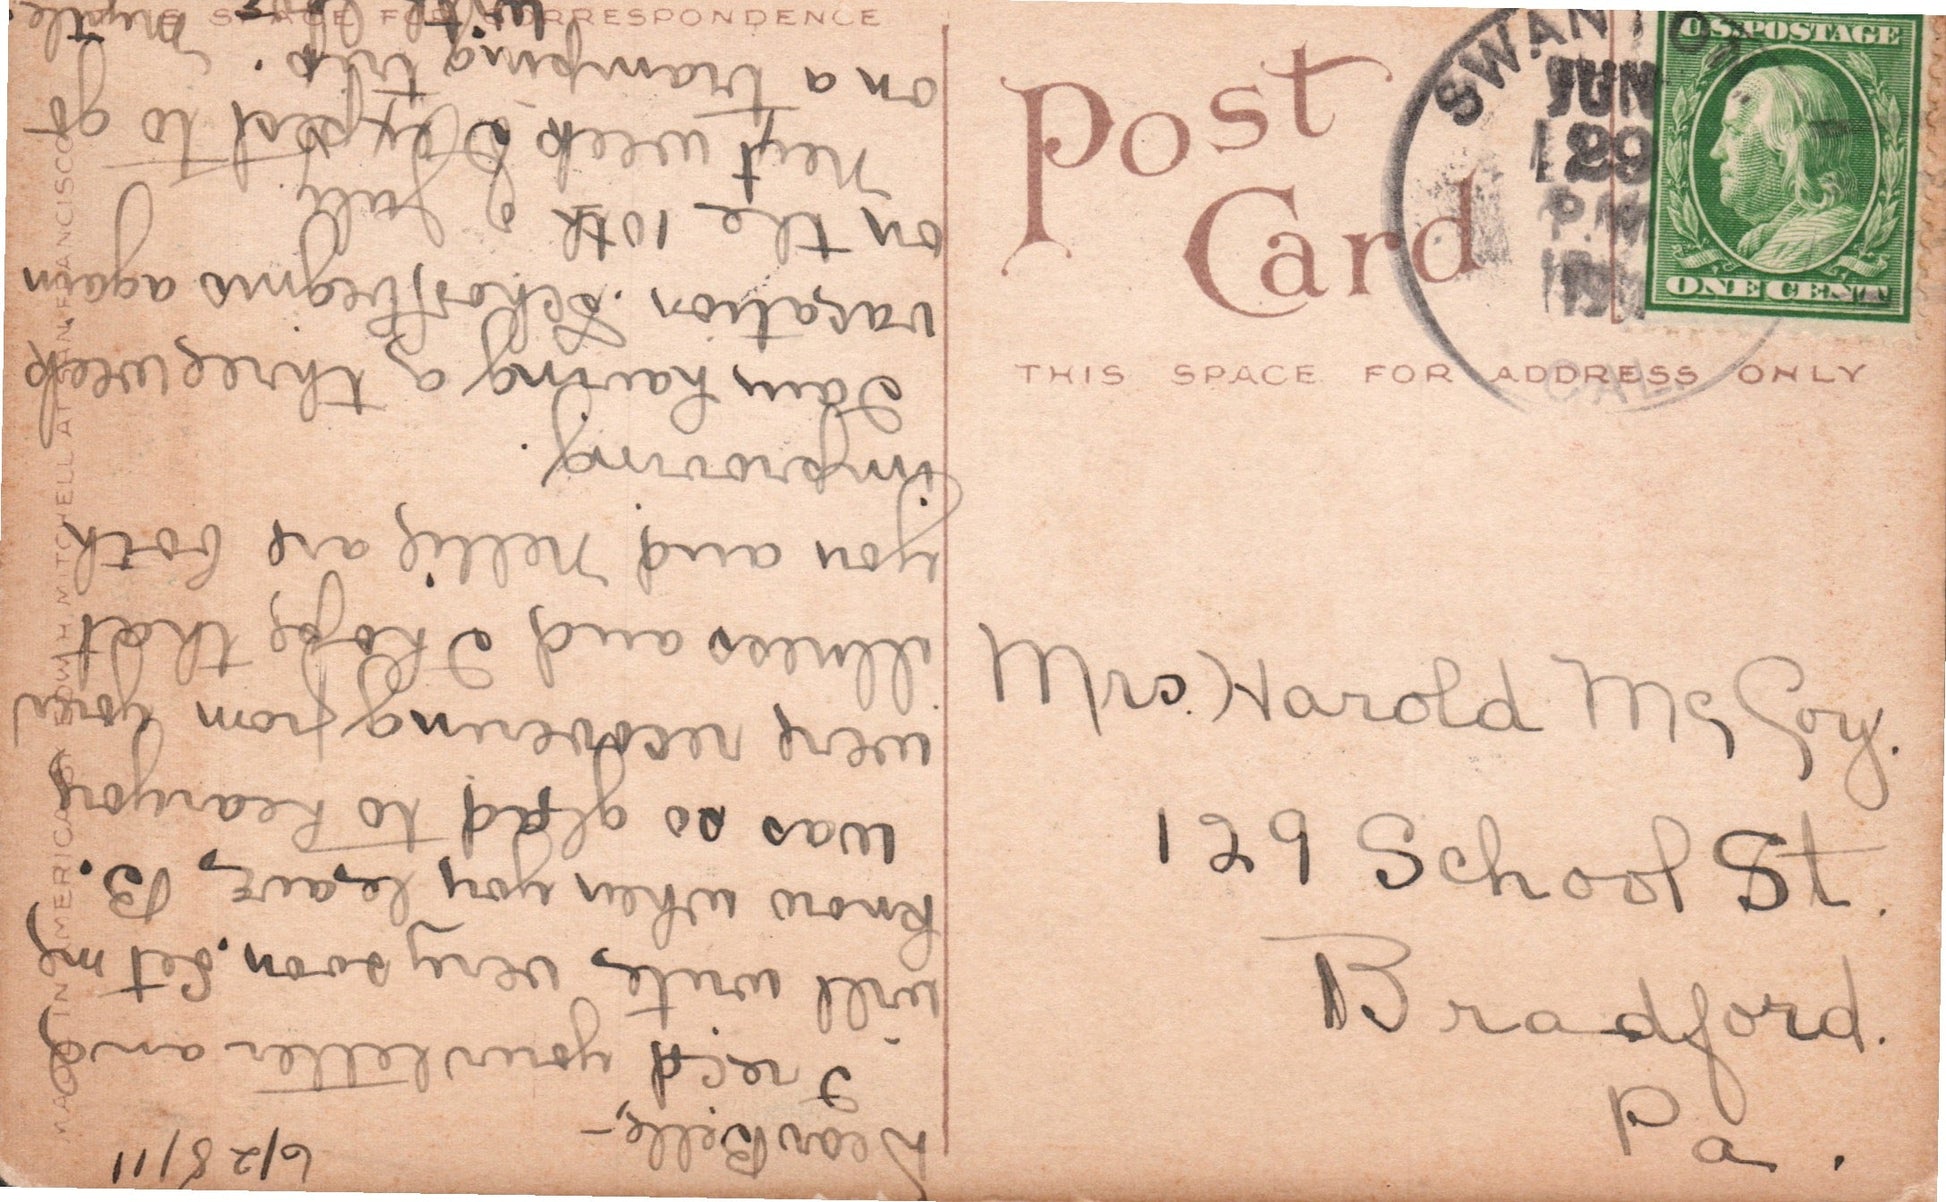 THIS SPACE FOR CORRESPONDENCE
6/28/11
Dear Belle,-
I rec'd your letter and
will write very soon. Let me
know when you leave B.
was so glad to hear you
were recovering from your
illness and I hope that
you and Nellie are both
improving.
I am having a three week
vacation. School begins again
on the 10th of July.
Next week I expect to go
on a tramping trip.
With love
Myrtle
MADE IN AMERICA BY EDW. H. MITCHELL AT SAN FRANCISCO
Post
Card
THIS SPACE FOR ADDRESS ONLY
SWANTON
JUN
29
P.M.
CAL
U.S. POSTAGE
ONE CENT
Mrs. Harold McCoy.
129 School St.
Bradford.
Pa.